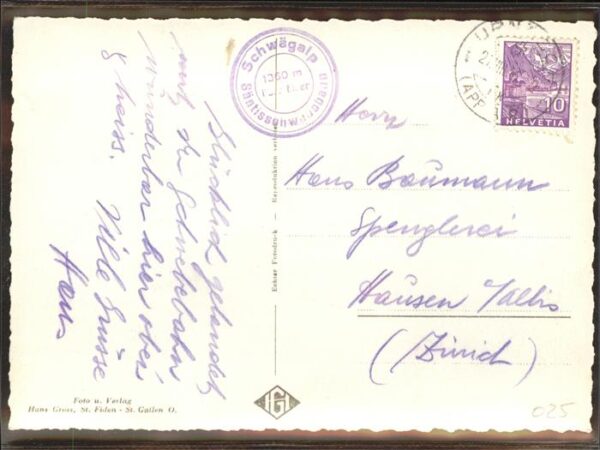 Glücklich gelandet
mit der Schwebebahn
Wunderbar hier oben
& heiss.
Viele Grüsse
Hans
Schwägalp
1360 m
Säntisschwebebahn
URNÄSCH
(APP
10
HELVETIA
Herr
Hans Baumann
Spenglerei
Hausen a/Albis
(Zürich)
Echter Fotodruck – Reproduktion verboten
Foto u. Verlag
Hans Gross, St. Fiden - St. Gallen O.
025